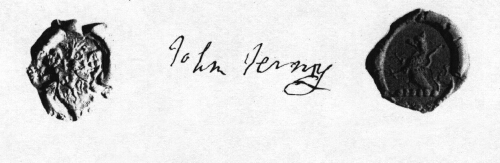 John Jenny